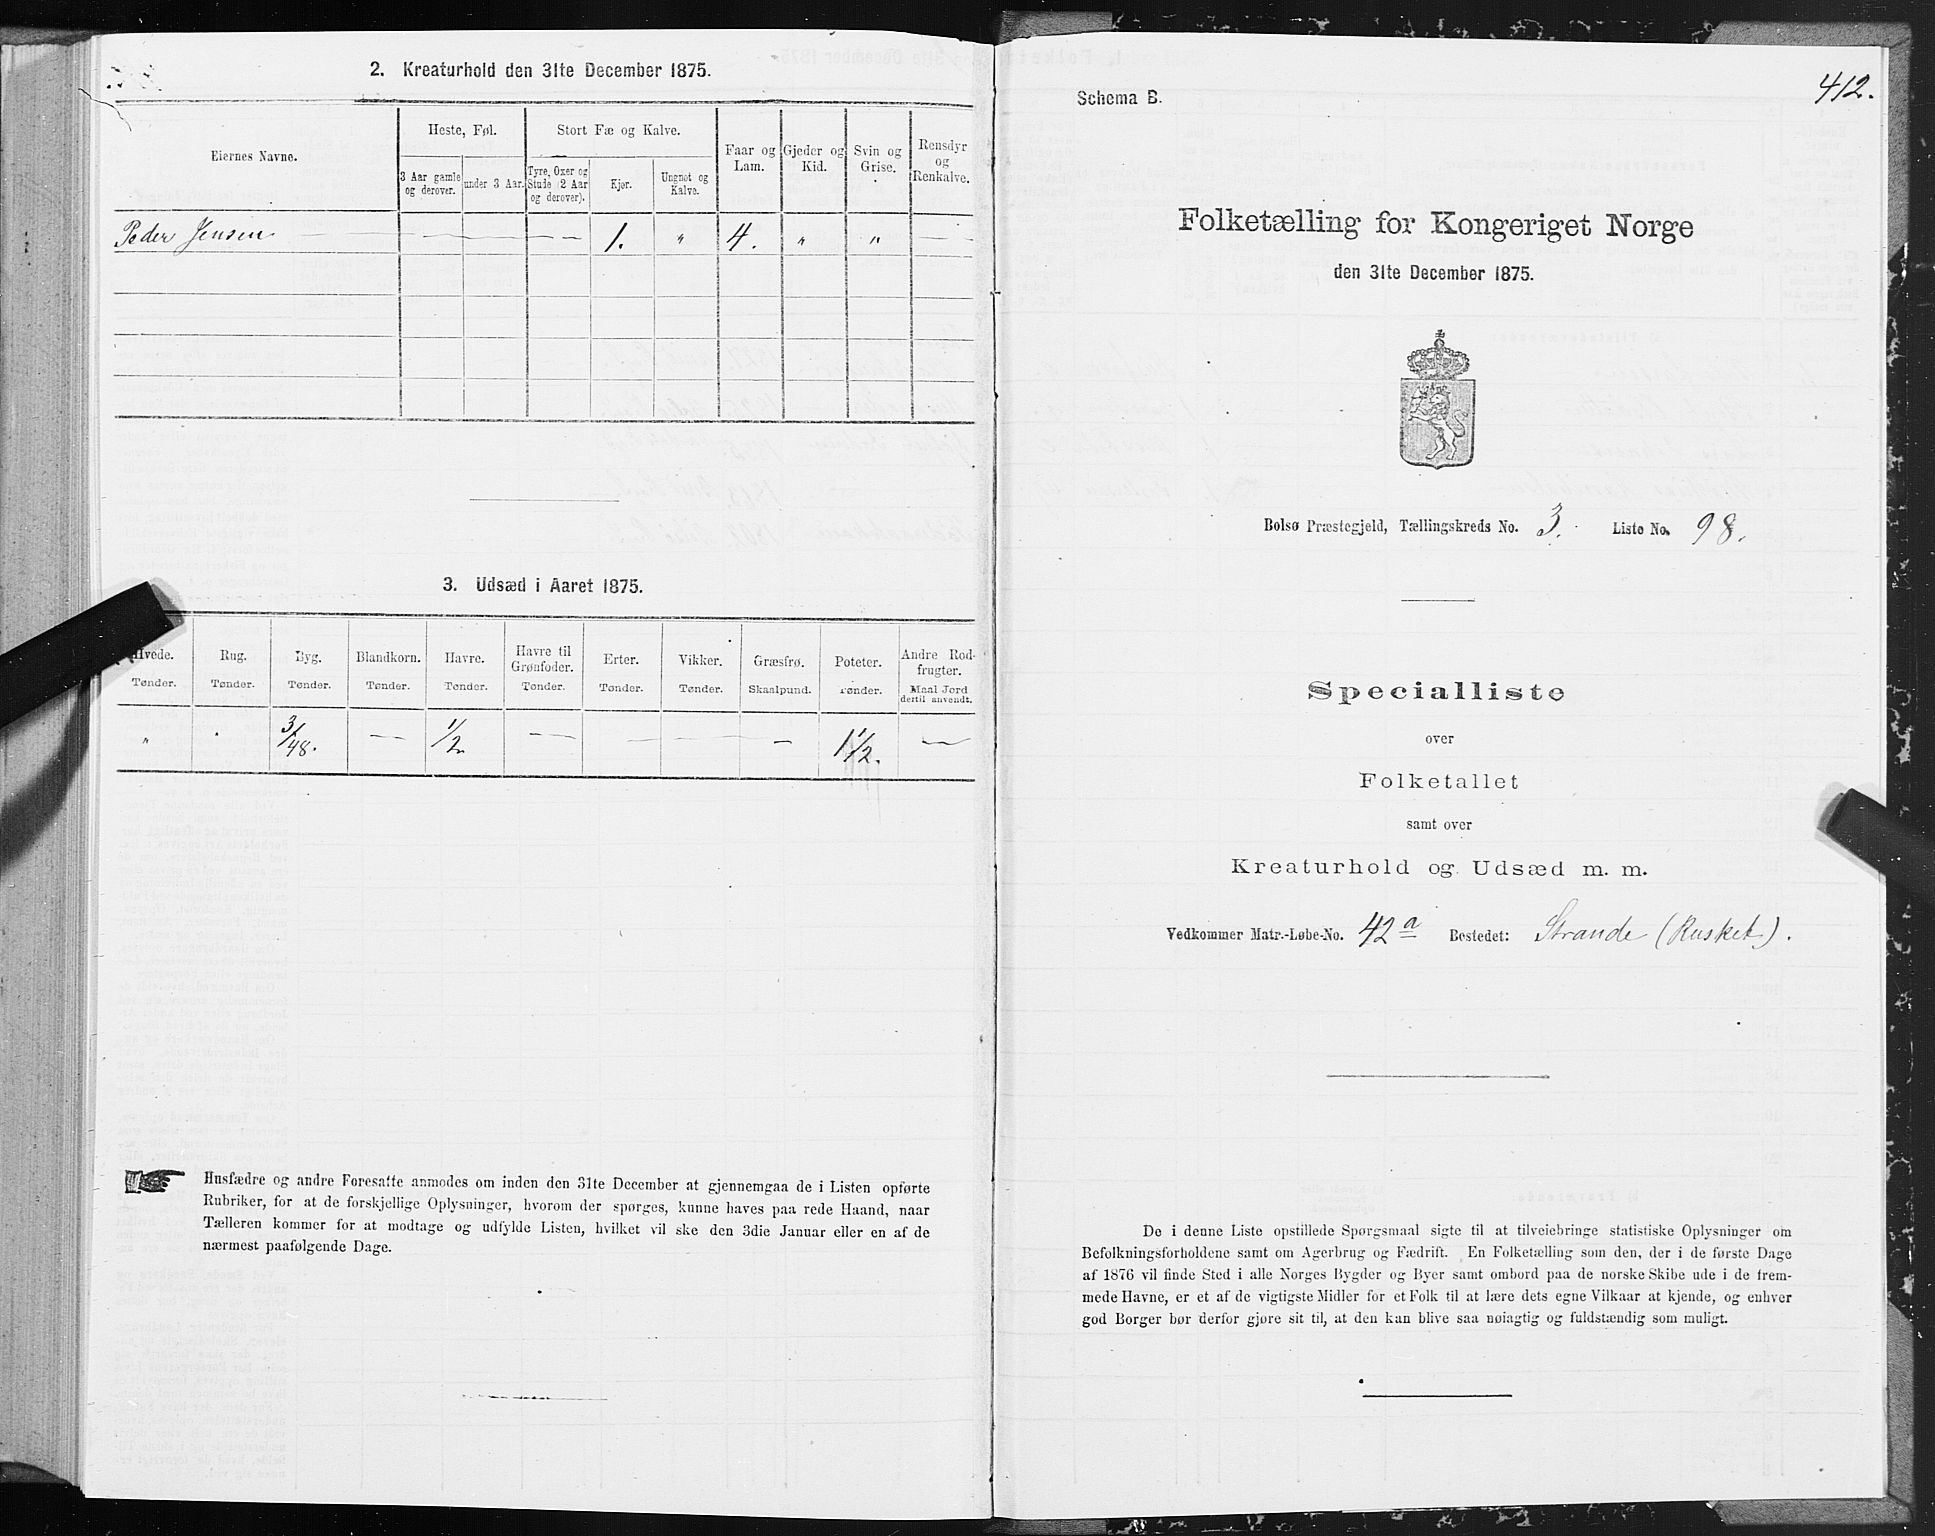 2. Kreaturhold den 31te December 1875.
Eiernes Navne.
Heste, Føl.
3 Aar gamle og derover.
under 3 Aar.
Stort Fæ og Kalve.
Tyre, Oxer og Stude (2 Aar og derover).
Kjør.
Ungnøt og Kalve.
Faar og Lam.
Gjeder og Kid.
Svin og Grise.
Rensdyr og Renkalve.
Peder Jensen — — — — 1. " 4. " " —
3. Udsæd i Aaret 1875.
Hvede. Rug. Byg. Blandkorn. Havre. Havre til Grønfoder. Erter. Vikker. Græsfrø. Poteter. Andre Rodfrugter.
Tønder. Tønder. Tønder. Tønder. Tønder. Tønder. Tønder. Tønder. Skaalpund. Tønder. Maal Jord dertil anvendt.
" . 3/48. — 1/2 — — — — 1 1/2. —
Husfædre og andre Foresatte anmodes om inden den 31te December at gjennemgaa de i Listen opførte
Rubriker, for at de forskjellige Oplysninger, hvorom der spørges, kunne haves paa rede Haand, naar
Tælleren kommer for at modtage og udfylde Listen, hvilket vil ske den 3die Januar eller en af de
nærmest paafølgende Dage.
412.
Schema B.
Folketælling for Kongeriget Norge
den 31te December 1875.
Bolsø Præstegjeld, Tællingskreds No. 3. Liste No. 98.
Specialliste
over
Folketallet
samt over
Kreaturhold og Udsæd m. m.
Vedkommer Matr.-Løbe-No. 42 a Bostedet: Strande (Rusket).
De i denne Liste opstillede Spørgsmaal sigte til at tilveiebringe statistiske Oplysninger om
Befolkningsforholdene samt om Agerbrug og Fædrift. En Folketælling som den, der i de første Dage
af 1876 vil finde Sted i alle Norges Bygder og Byer samt ombord paa de norske Skibe ude i de frem-
mede Havne, er et af de vigtigste Midler for et Folk til at lære dets egne Vilkaar at kjende, og enhver
god Borger bør derfor gjøre sit til, at den kan blive saa nøiagtig og fuldstændig som muligt.